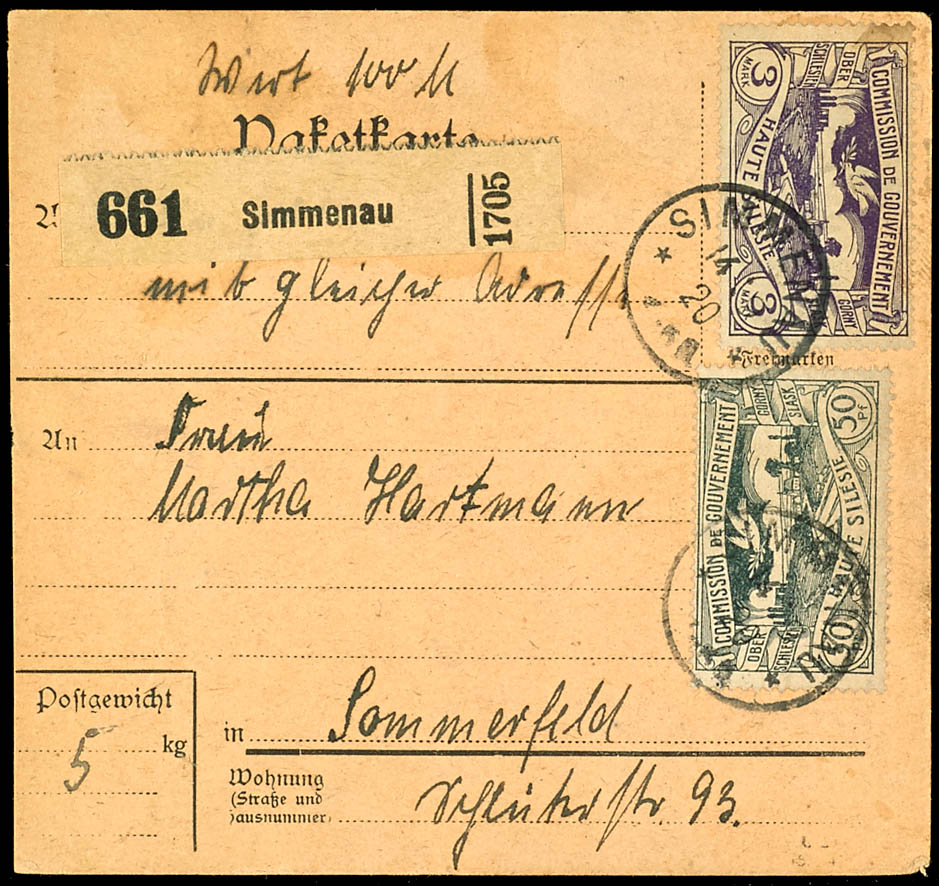 Wert 100 M
Paketkarte
661 Simmenau 1705
mit gleicher Adresse
3 MARK
OBER SCHLESIEN
COMMISSION DE GOUVERNEMENT
HAUTE SILESIE
GORNY
3 MARK
SIMMENAU
14
20
Freimarken
An Frau
Martha Hartmann
COMMISSION DE GOUVERNEMENT
GORNY SLASK
50 Pf
HAUTE SILESIE
OBER SCHLESIEN
50
Postgewicht
5 kg
in Sommerfeld
Wohnung
(Straße und
Hausnummer)
Schlüterstr. 93.